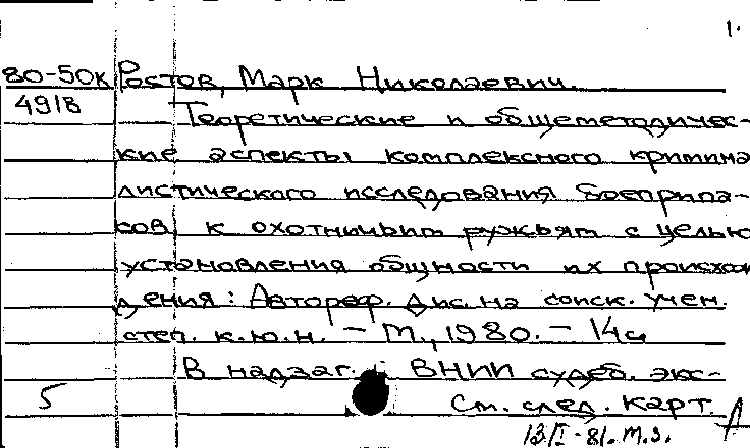 1.
80-50к Ростов, Марк Николаевич.
4918 Теоретические и общеметодичес-
кие аспекты комплексного кримина
листического исследования боеприпа-
сов к охотничьим ружьям с целью
установления общности их происхож
дения: Автореф. дис. на соиск. учен.
степ. к.ю.н. — М., 1980. — 14с
В надзаг.: ВНИИ судеб. экс-
5 См. след. карт.
13/I-81. м.з. А